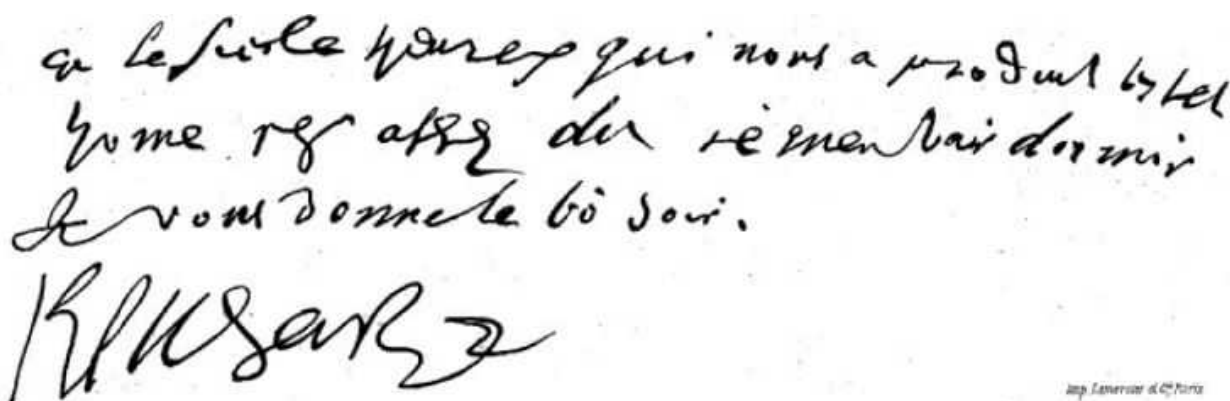 le siecle heureux qui nous a produit ung tel
home assez je men vais dormir
Je vous donne le bõ soir.
Ronsard
Imp. Lemercier et Cie Paris